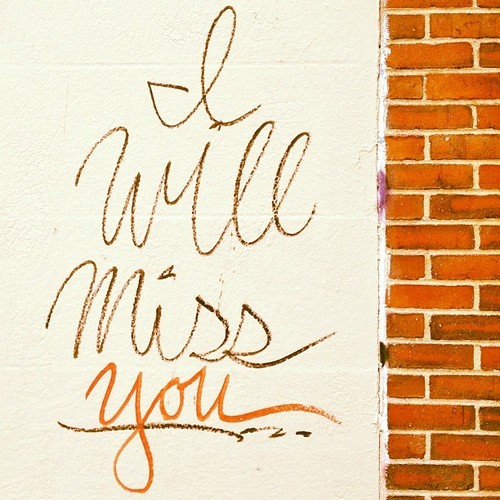 I
Will
Miss
You